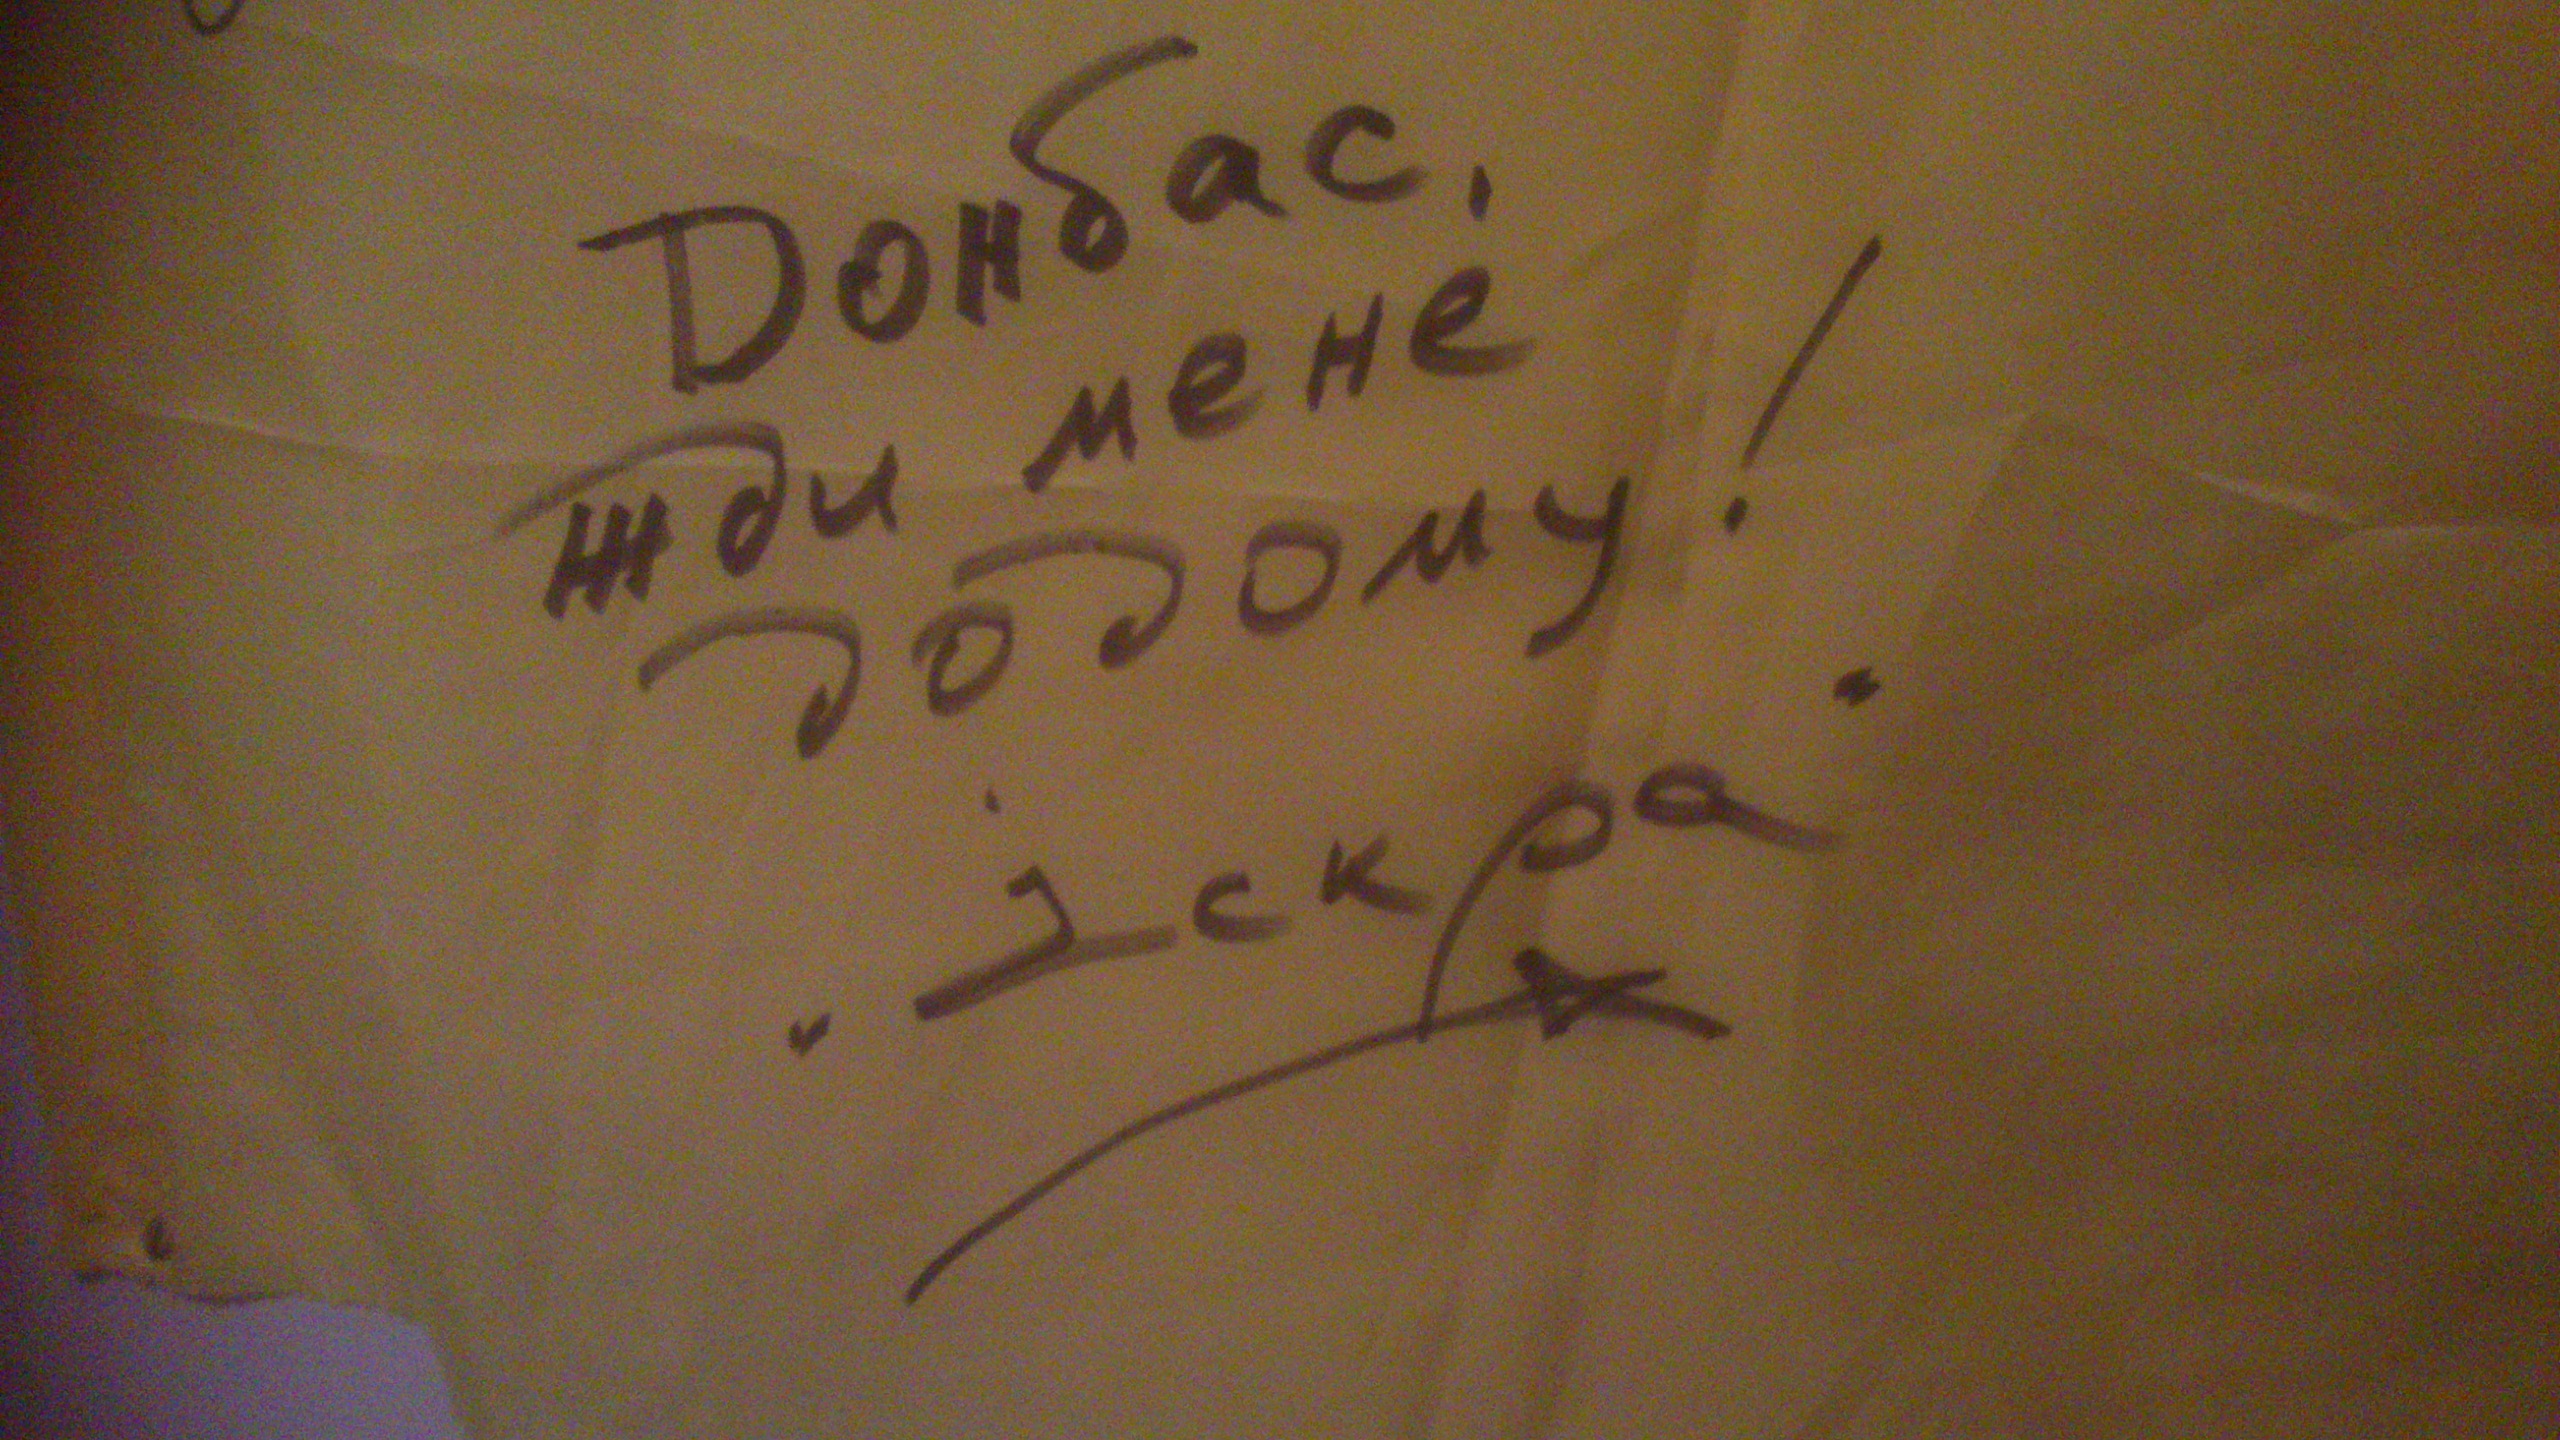 Донбас,
жди мене
додому!
"Іскра"